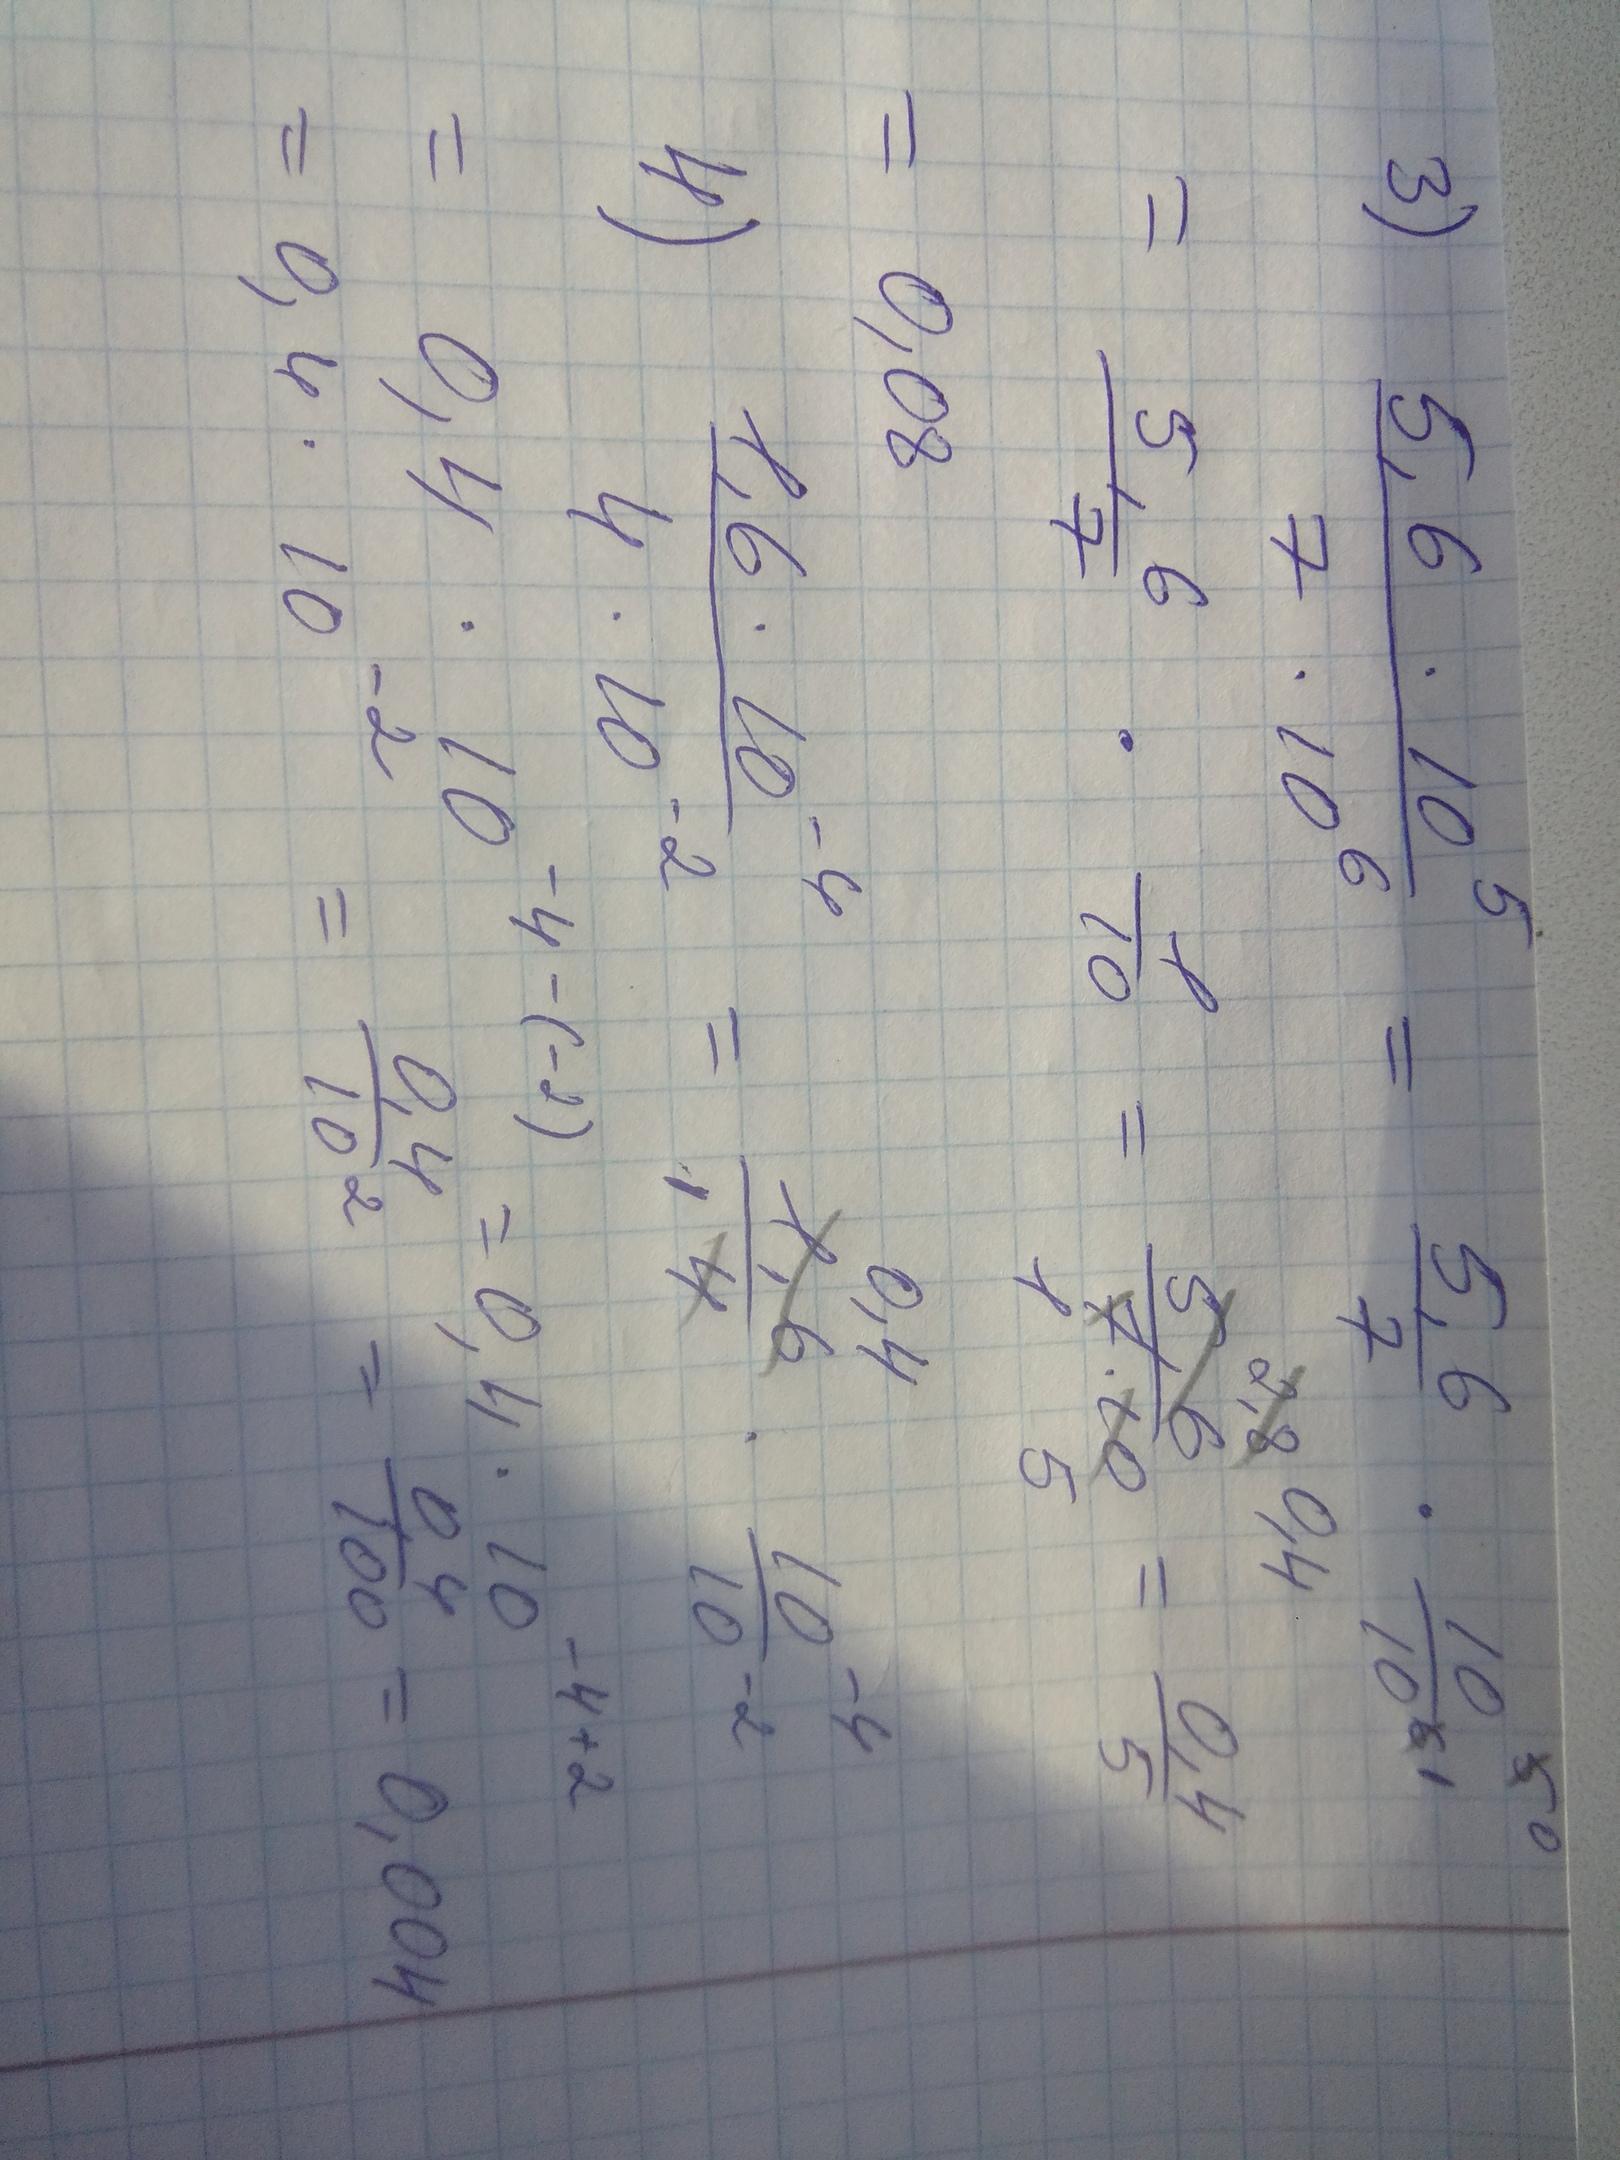 3) 5,6 · 10⁵ / 7 · 10⁶ = 5,6/7 · 10⁵ ⁰/10⁶ ¹ =
= 5,6/7 · 1/10 = 5,6 2,8 0,4 / 7 1 · 10 5 = 0,4/5
= 0,08
4) 1,6 · 10⁻⁴ / 4 · 10⁻² = 1,6 0,4 / 4 1 · 10⁻⁴/10⁻²
= 0,4 · 10⁻⁴⁻⁽⁻²⁾ = 0,4 · 10⁻⁴⁺²
= 0,4 · 10⁻² = 0,4/10² = 0,4/100 = 0,004